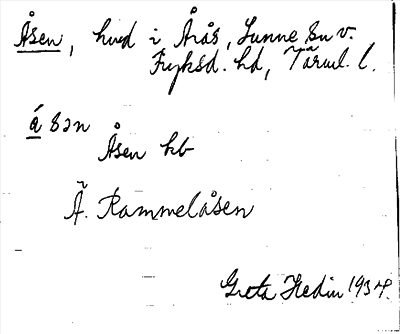 Åsen, hmd i Årås, Sunne sn v.
Fryksd. hd, Värml. l.
å sən
Åsen kb
Ä. Rammelåsen
Greta Hedin 1934.